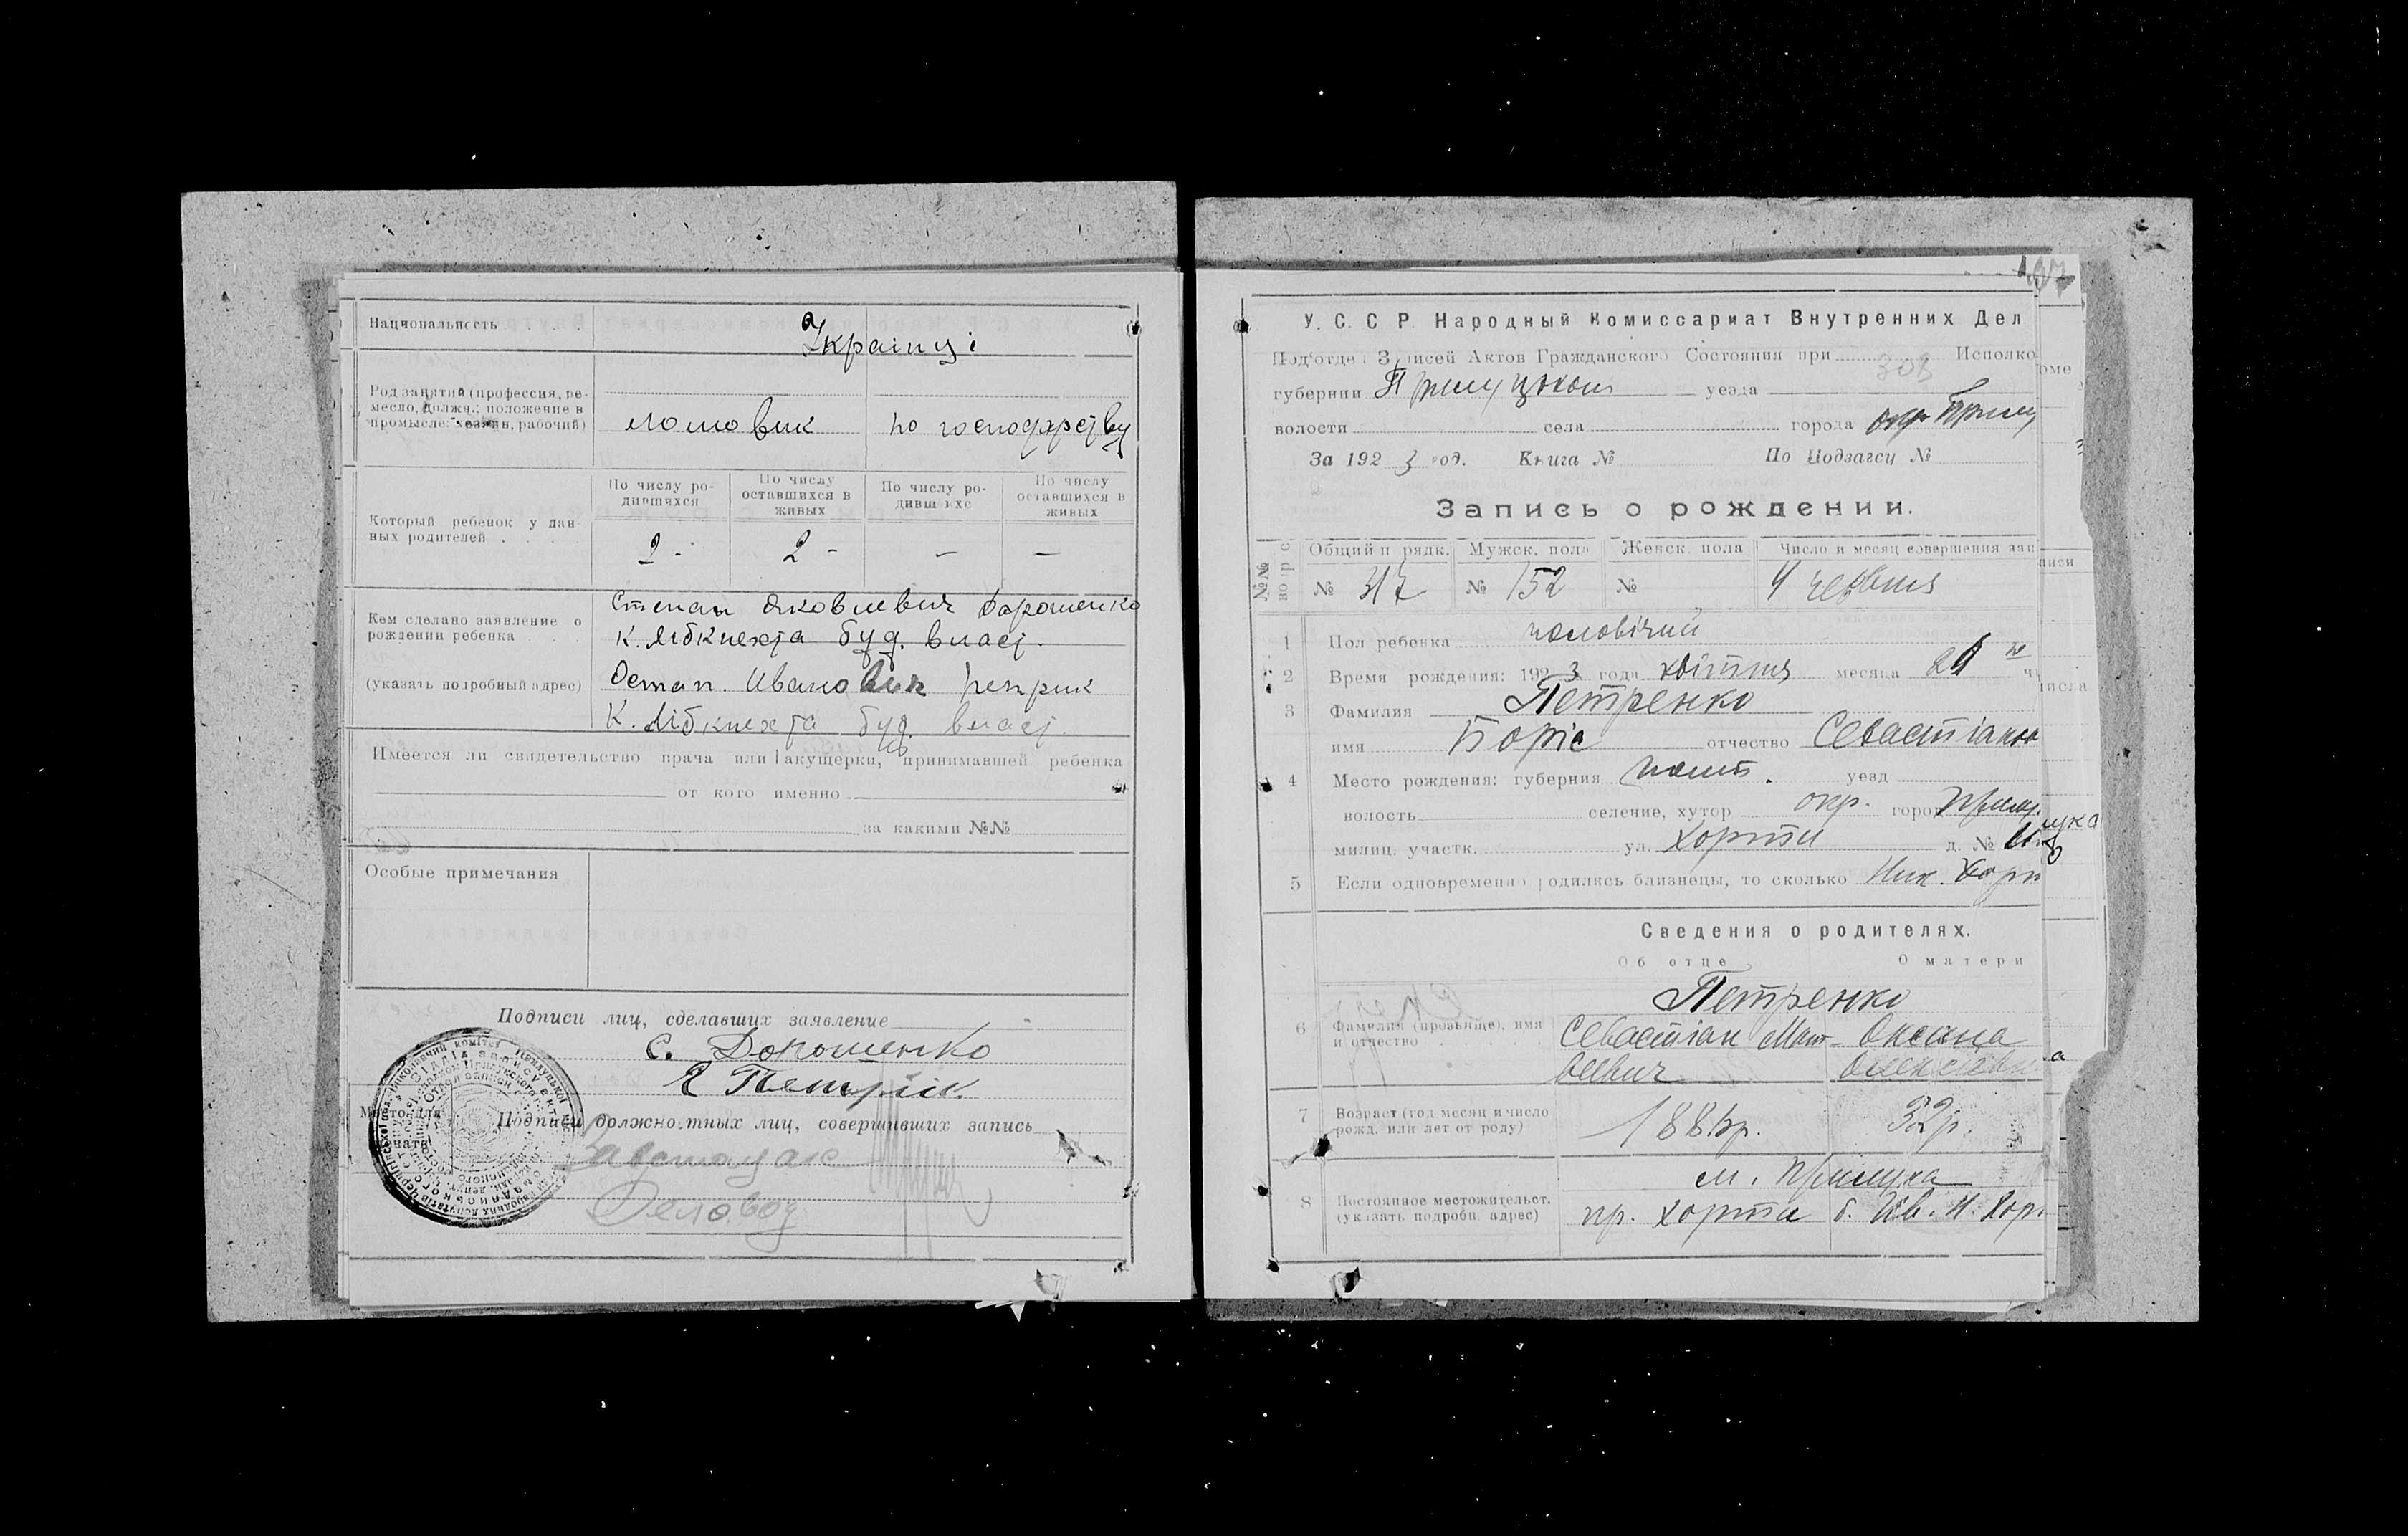 Национальность
Українці
Род занятий (профессия, ре-
месло, должн.; положение в
промысле: хозяин, рабочий)
ломовик
по господарству
Который ребенок у дан-
ных родителей . . . .
По числу ро-
дившихся
По числу
оставшихся в
живых
По числу ро-
дивш хс
По числу
оставшихся в
живых
2 -
2 -
—
—
Кем сделано заявление о
рождении ребенка . . .
(указать подробный адрес)
Степан Яковлевич Дорошенко
К. Лібкнехта буд. власт.
Остап. Иванович Петрик
К. Лібкнехта буд. власт.
Имеется ли свидетельство врача или акушерки, принимавшей ребенка
от кого именно
за какими №№
Особые примечания
Подписи лиц, сделавших заявление
С. Дорошенко
Петрік
Место для
печати
Подписи должностных лиц, совершивших запись
Деловод
197
У. С. С. Р. Народный Комиссариат Внутренних Дел
Под'отдел Записей Актов Гражданского Состояния при Исполко
308
губернии Прилуцької уезда
волости села города окр. Прилу
За 1923 год. Книга № По Подзагсу №
Запись о рождении.
Общий п рядк. Мужск. пола Женск. пола Число и месяц совершения зап
№ 317 № 152 № 4 червня
1 Пол ребенка чоловічий
2 Время рождения: 1923 года квітня месяца 21 ч
3 Фамилия Петренко
имя Боріс отчество Севастіанов
4 Место рождения: губерния Полт. уезд
волость селение, хутор окр. город Прилу
милиц. участк. ул. Хорти д. №
5 Если одновременно родились близнецы, то сколько
Сведения о родителях.
Об отце О матери
Петренко
6 Фамилия (прозвище), имя
и отчество . . . . . .
Севастіан Мат- Оксана
веевич Олексіївн
7 Возраст (год месяц и число
рожд. или лет от роду)
32 р.
м. Прилука
8 Постоянное местожительст.
(указать подробн. адрес)
пр. Хорти